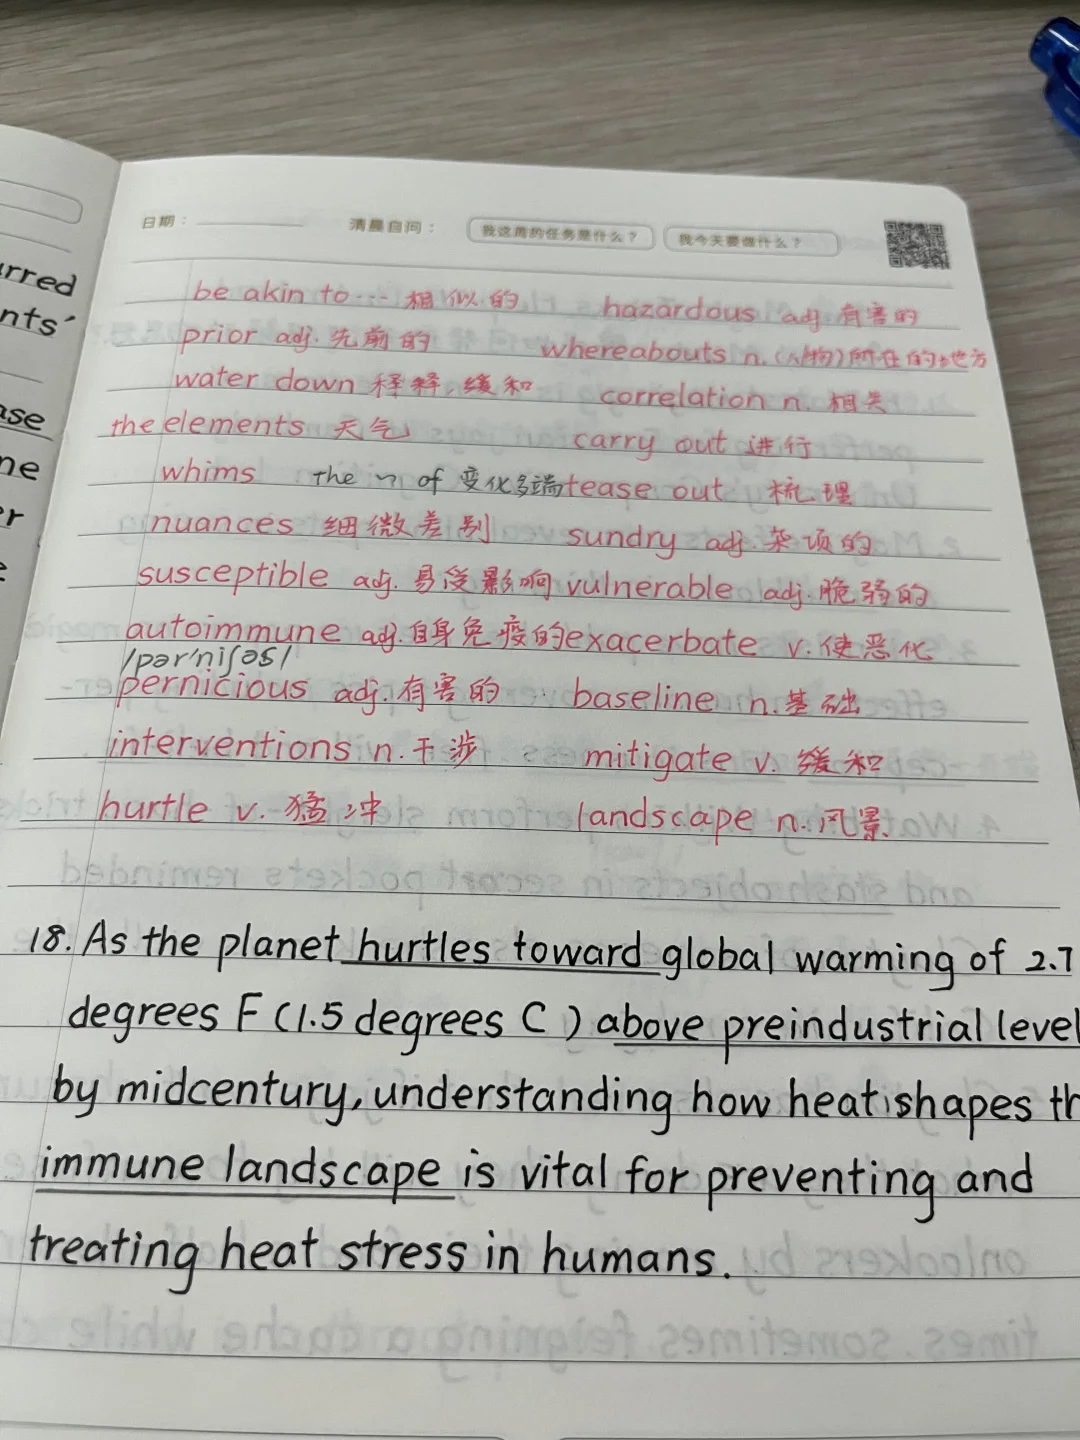 日期： 清晨自问： 我这周的任务是什么？ 我今天要做什么？
be akin to … 相似的 hazardous adj 有害的
prior adj. 先前的 whereabouts n. (人/物)所在的地方
water down 稀释,缓和 correlation n. 相关
the elements 天气 carry out 进行
whims the n of 变化多端 tease out 梳理
nuances 细微差别 sundry adj. 杂项的
susceptible adj. 易受影响 vulnerable adj. 脆弱的
autoimmune adj. 自身免疫的 exacerbate v. 使恶化
/pər'niʃəs/
pernicious adj. 有害的 baseline n. 基础
interventions n. 干涉 mitigate v. 缓和
hurtle v. 猛冲 landscape n. 风景.
18. As the planet hurtles toward global warming of 2.7
degrees F (1.5 degrees C) above preindustrial level
by midcentury, understanding how heat shapes th
immune landscape is vital for preventing and
treating heat stress in humans.
rred
nts'
ase
ne
r